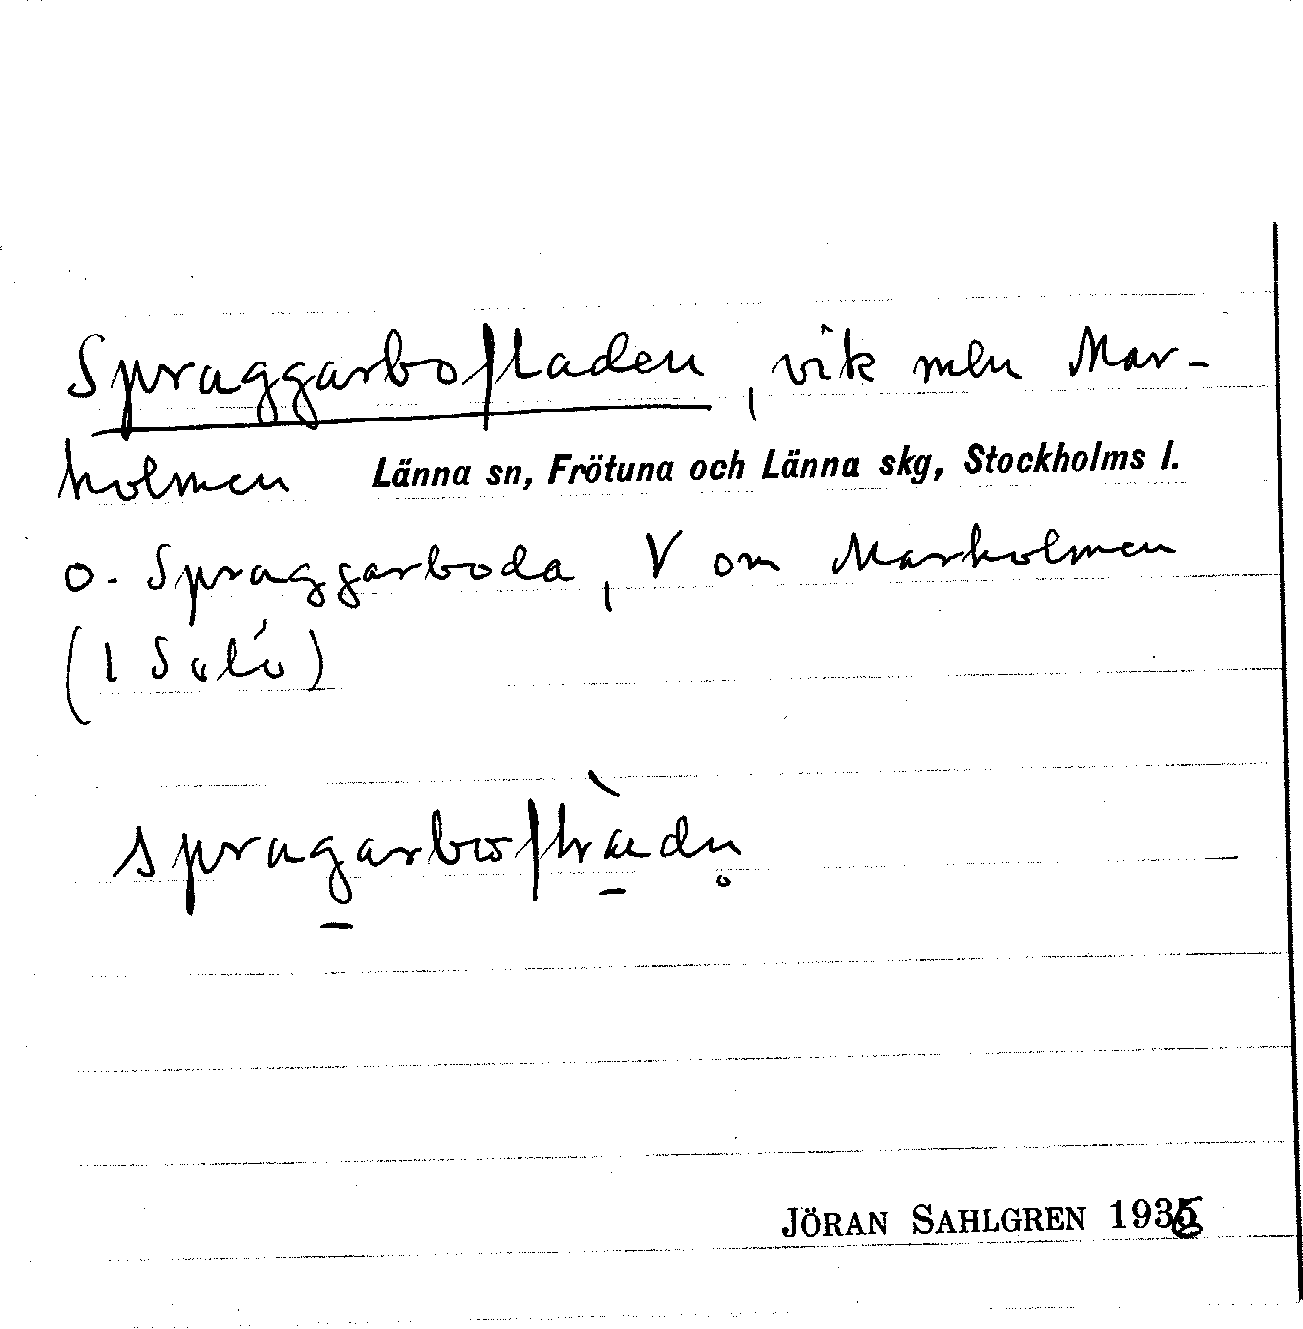 Spraggarbofladen, vik mln Mar-
holmen Länna sn, Frötuna och Länna skg, Stockholms l.
o. Spraggarboda, V om Marholmen
JÖRAN SAHLGREN 1936